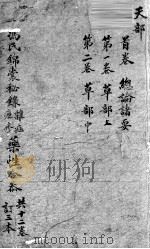 天部
首卷 總論諸要
第一卷 草部上
第二卷 草部中
馮氏錦囊秘錄 雜症 痘疹 藥性合參
共十二卷
訂三本